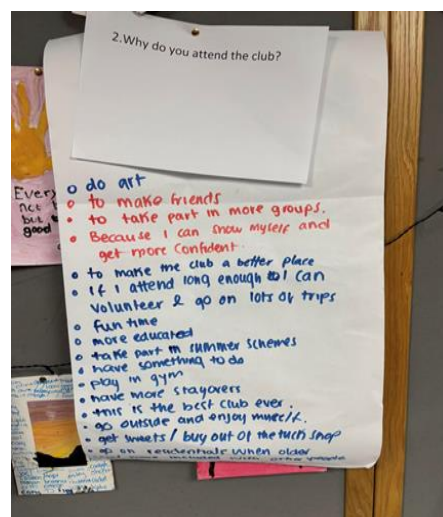 2.Why do you attend the club?
o do art
o to make friends
o to take part in more groups.
o Because I can show myself and
get more confident.
o to make the club a better place
o If I attend long enough I can
volunteer & go on lots of trips
o fun time
o more educated
o take part in summer schemes
o have something to do
o play in gym
o have more stayovers
o this is the best club ever.
o go outside and enjoy
o get sweets / buy out of the tuck shop
o go on residentials when older
with other people
Every
not
but
good